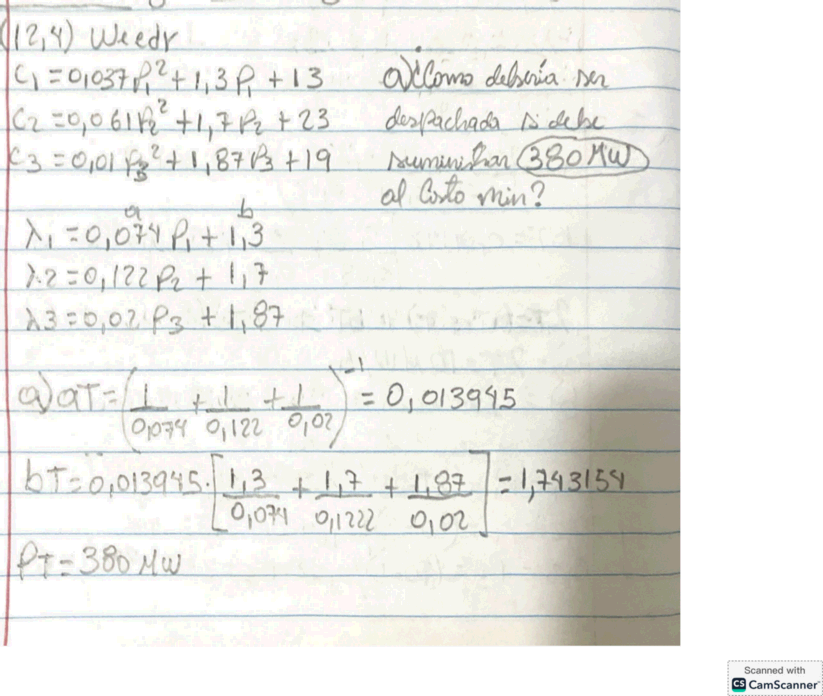 (12,4) Weedy
C1 = 0,037P1² + 1,3P1 + 13
C2 = 0,061P2² + 1,7P2 + 23
C3 = 0,01P3² + 1,87P3 + 19
a) ¿Como debería ser
despachada si debe
suministrar 380 MW
al Costo min?
a b
λ1 = 0,074 P1 + 1,3
λ2 = 0,122 P2 + 1,7
λ3 = 0,02 P3 + 1,87
a) aT = (1/0,074 + 1/0,122 + 1/0,02)⁻¹ = 0,013945
bT = 0,013945 · [1,3/0,074 + 1,7/0,1222 + 1,87/0,02] = 1,743154
PT = 380 MW
Scanned with
CS CamScanner